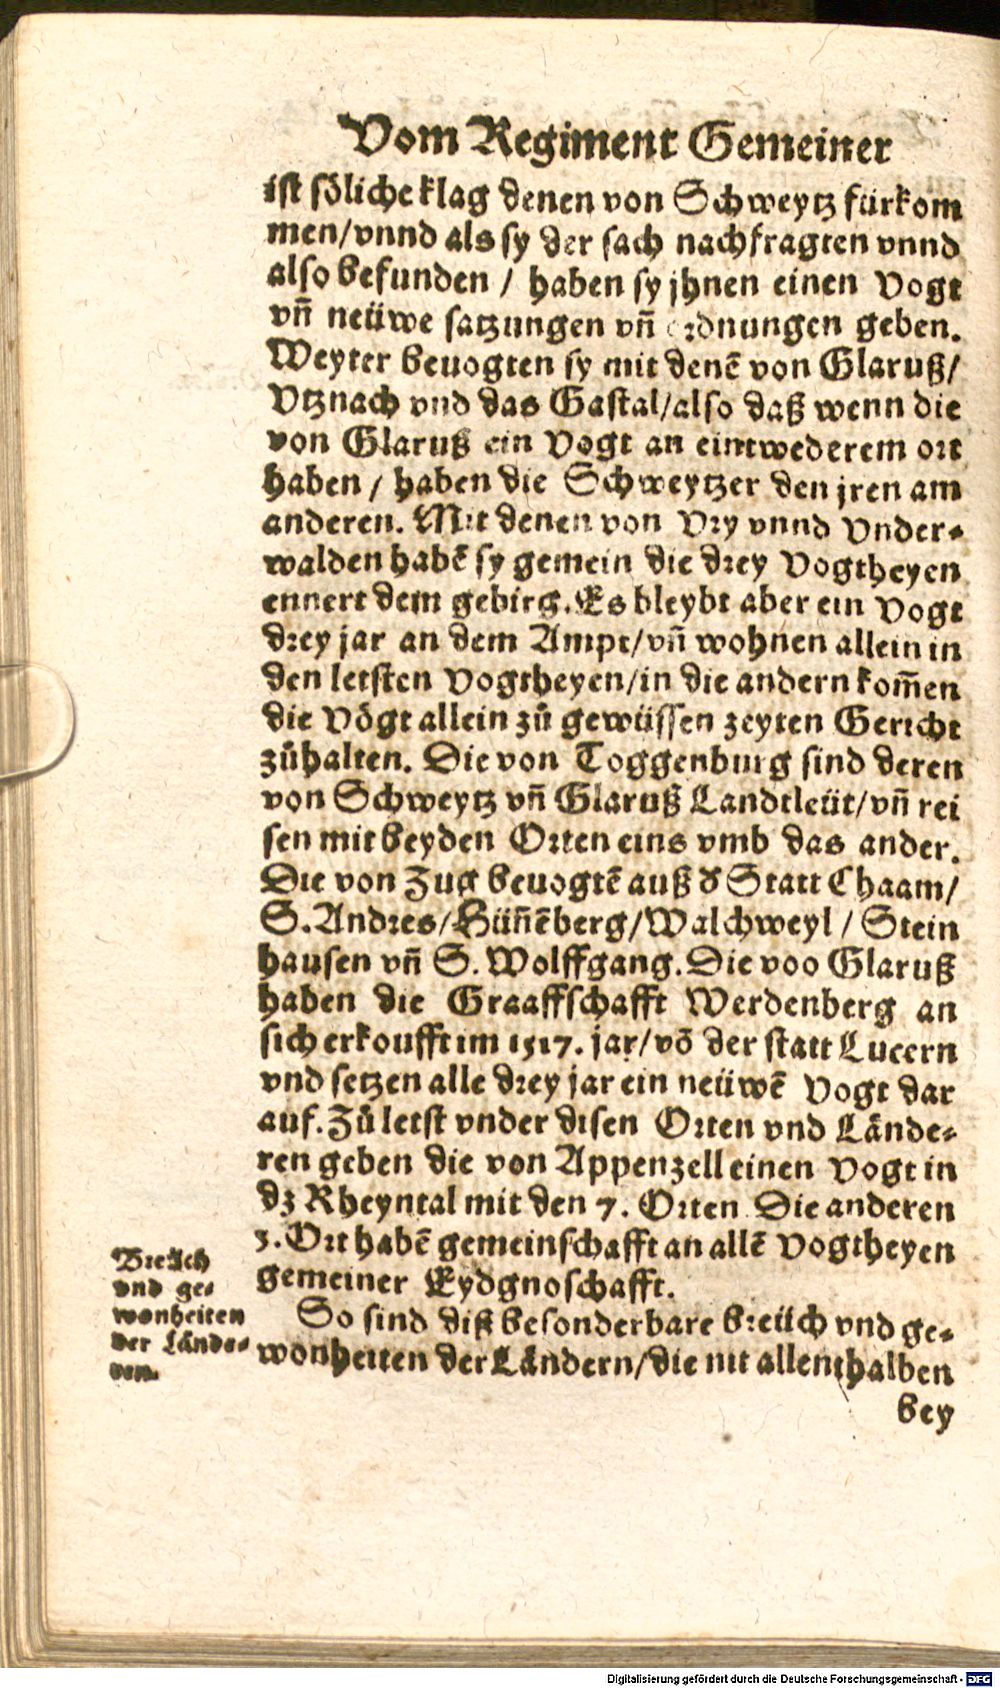 Vom Regiment Gemeiner
ist söliche klag denen von Schweytz fürkom
men/vnnd als sy der sach nachfragten vnnd
also befunden / haben sy jhnen einen Vogt
vñ neüwe satzungen vñ ordnungen geben.
Weyter beuogten sy mit denẽ von Glaruß/
Vtznach vnd das Gastal/also daß wenn die
von Glaruß ein Vogt an eintwederem ort
haben / haben die Schweytzer den jren am
anderen. Mit denen von Vry vnnd Vnder-
walden habẽ sy gemein die drey Vogtheyen
ennert dem gebirg. Es bleybt aber ein Vogt
drey jar an dem Ampt/vñ wohnen allein in
den letsten Vogtheyen/in die andern kom̃en
die Vögt allein zů gewüssen zeyten Gericht
zůhalten. Die von Toggenburg sind deren
von Schweytz vñ Glaruß Landtleüt/vñ rei
sen mit beyden Orten eins vmb das ander.
Die von Zug beuogtẽ auß d Statt Chaam/
S. Andres/Hüñẽberg/Walchweyl / Stein
hausen vñ S. Wolffgang. Die voo Glaruß
haben die Graaffschafft Werdenberg an
sich erkoufft im 1517. jar/võ der statt Lucern
vnd setzen alle drey jar ein neüwẽ Vogt dar
auf. Zů letst vnder disen Orten vnd Lände-
ren geben die von Appenzell einen Vogt in
dz Rheyntal mit den 7. Orten Die anderen
3. Ort habẽ gemeinschafft an allẽ Vogtheyen
gemeiner Eydgnoschafft.
Breüch
vnd ge-
wonheiten
der Lände-
ren.
So sind diß besonderbare breüch vnd ge-
wonheiten der Ländern/die nit allenthalben
bey
Digitalisierung gefördert durch die Deutsche Forschungsgemeinschaft - DFG